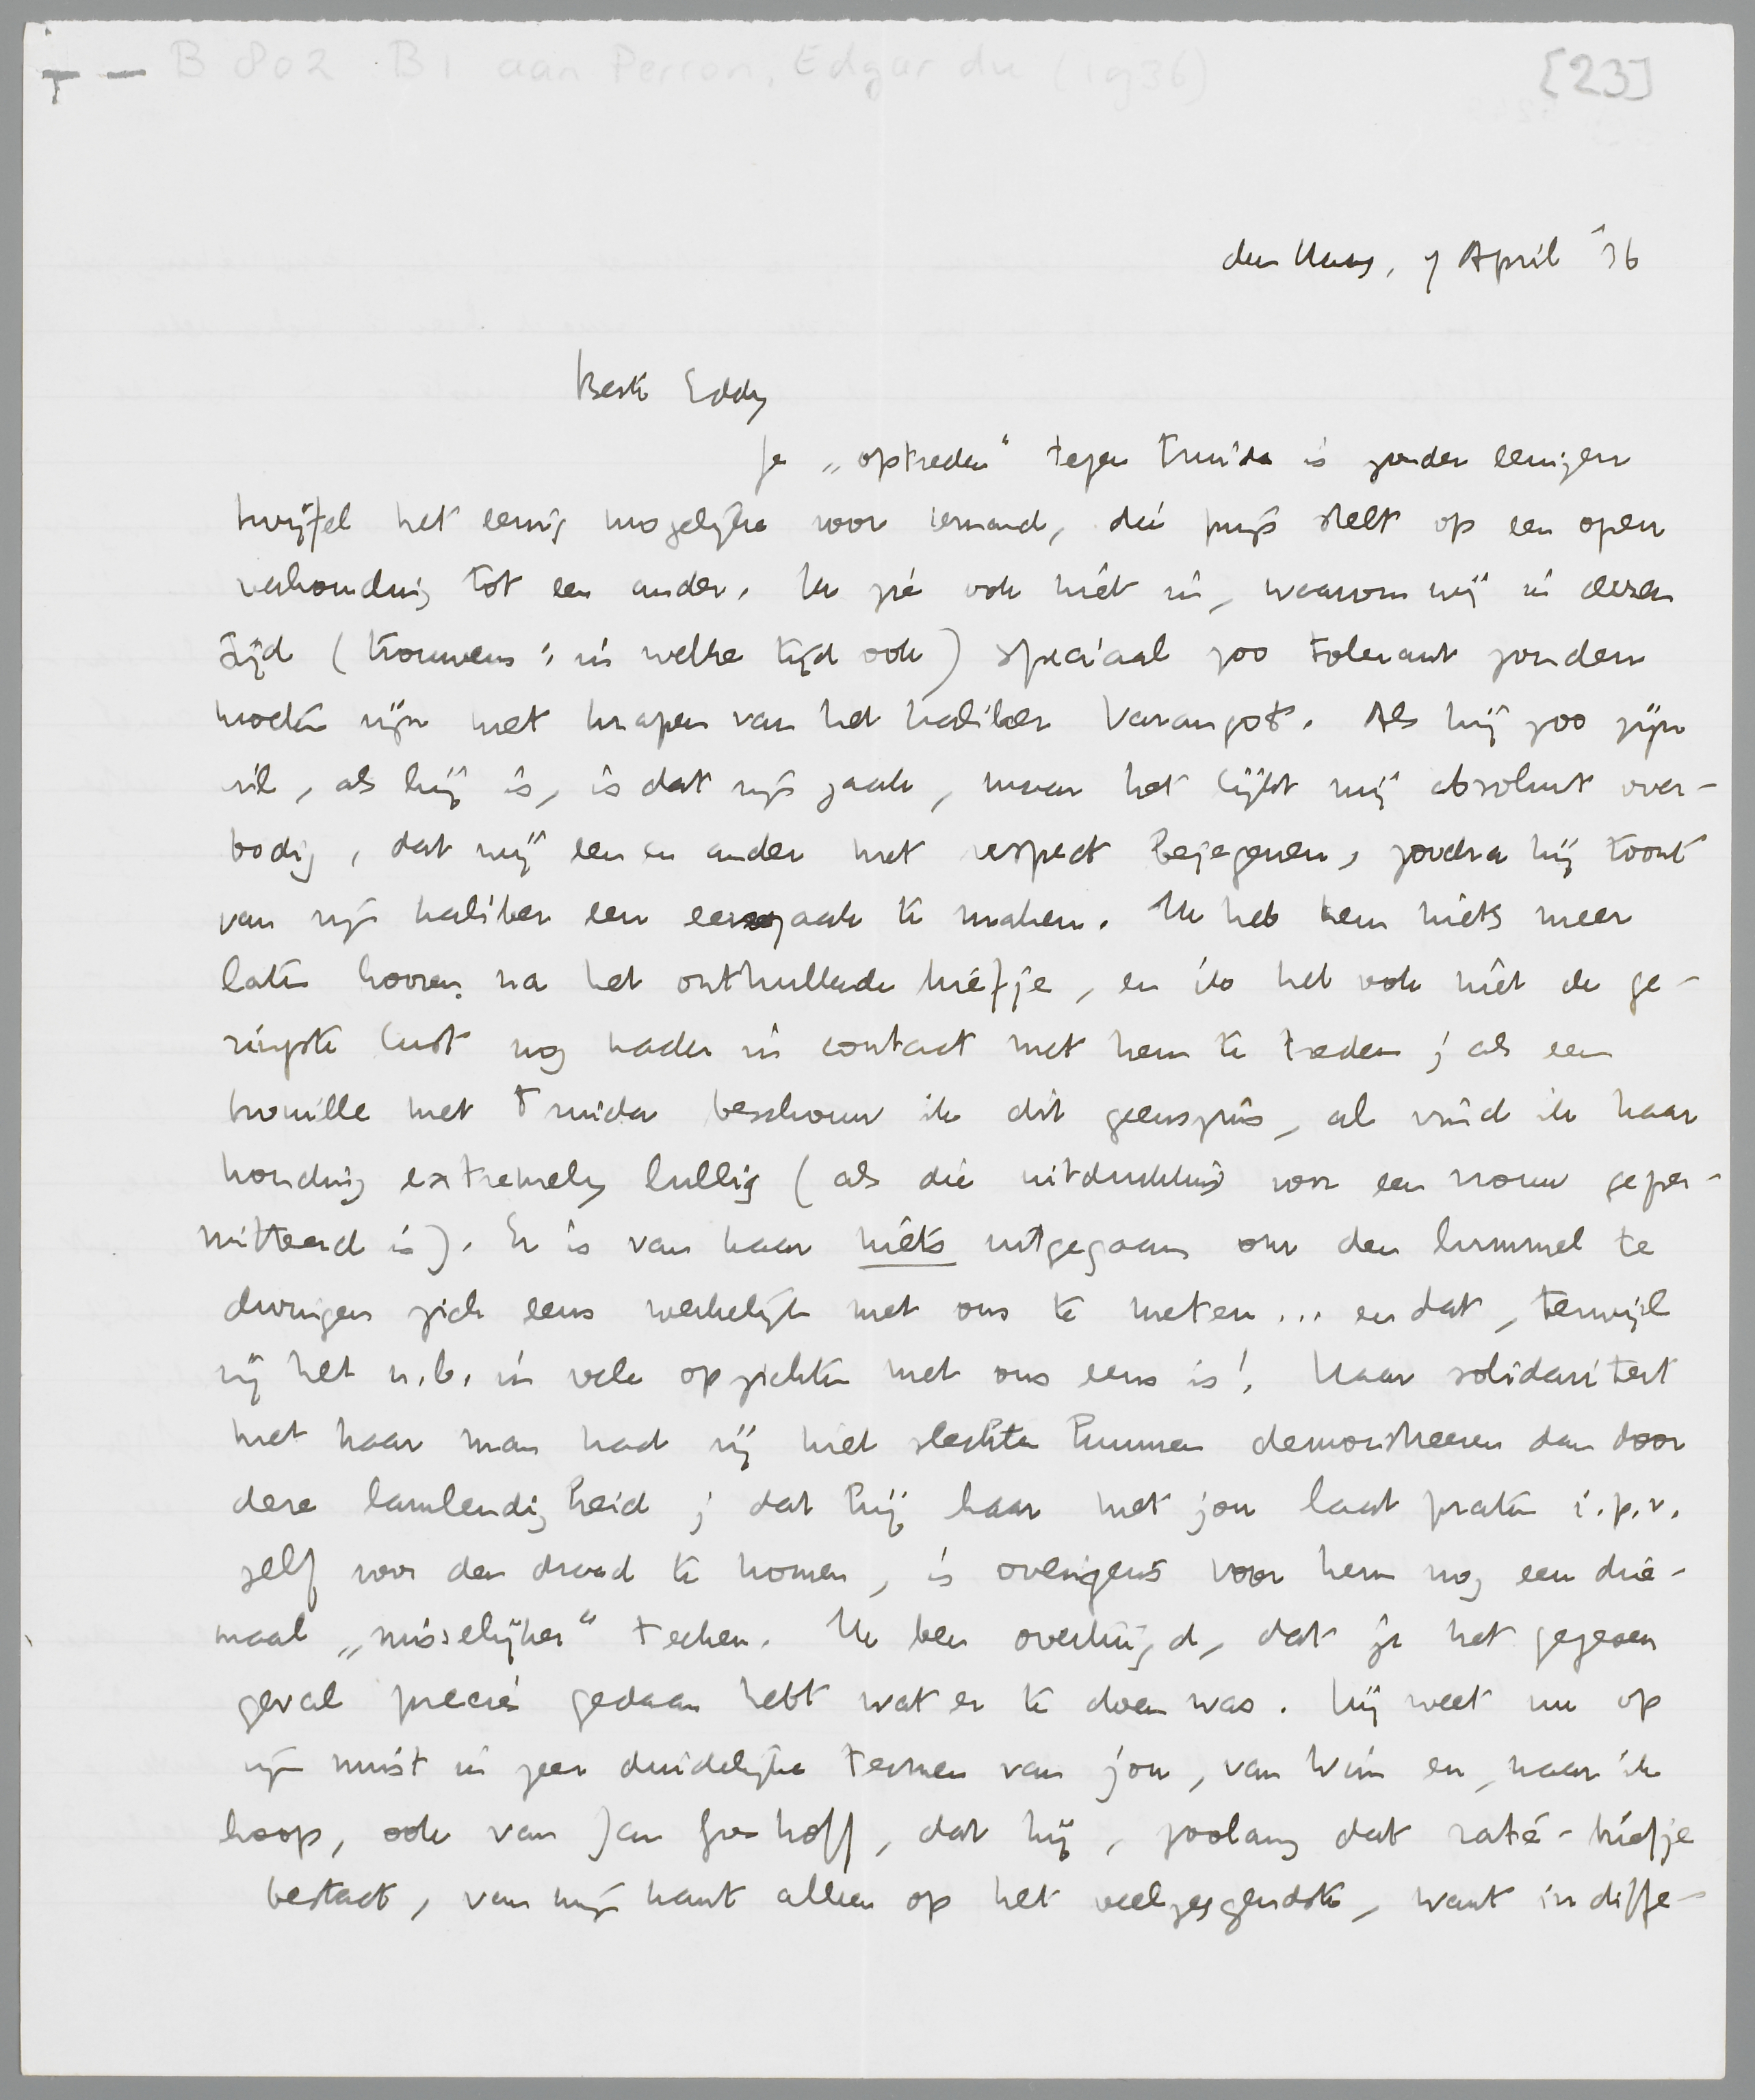 B 802 B 1 aan Perron, Edgar du (1936)
[23]
den Haag, 7 April '36
Beste Eddy
Je „optreden” tegen Truida is zonder eenigen
twijfel het eenig mogelijke voor iemand, die prijs stelt op een open
verhouding tot een ander. Ik zie ook niet in, waarom wij in dezen
tijd (trouwens: in welke tijd ook) speciaal zoo tolerant zouden
moeten zijn met knapen van het kaliber Varangot. Als hij zoo zijn
wil, als hij is, is dat zijn zaak, maar het lijkt mij absoluut over-
bodig, dat wij een en ander met respect bejegenen, zoodra hij toont
van zijn kaliber een eerezaak te maken. Ik heb hem niets meer
laten hooren na het onthullende briefje, en ik heb ook niet de ge-
ringste lust nog nader in contact met hem te treden; als een
brouille met Truida beschouw ik dit geenszins, al vind ik haar
houding extremely lullig (als die uitdrukking voor een vrouw geper-
mitteerd is). Er is van haar niets uitgegaan om den lummel te
dwingen zich eens werkelijk met ons te meten... en dat, terwijl
zij het n.b. in vele opzichten met ons eens is! Haar solidariteit
met haar man had zij niet slechter kunnen demonstreeren dan door
deze lamlendigheid; dat hij haar met jou laat praten i.p.v.
zelf voor den draad te komen, is overigens voor hem nog een drie-
maal „misselijker” teeken. Ik ben overtuigd, dat je het gegeven
geval precies gedaan hebt wat er te doen was. Hij weet nu op
zijn minst in zeer duidelijke termen van jou, van Wim en, naar ik
hoop, ook van Jan Greshoff, dat hij, zoolang dat raté-briefje
bestaat, van mijn kant alleen op het veelzeggendste, want indiffe-